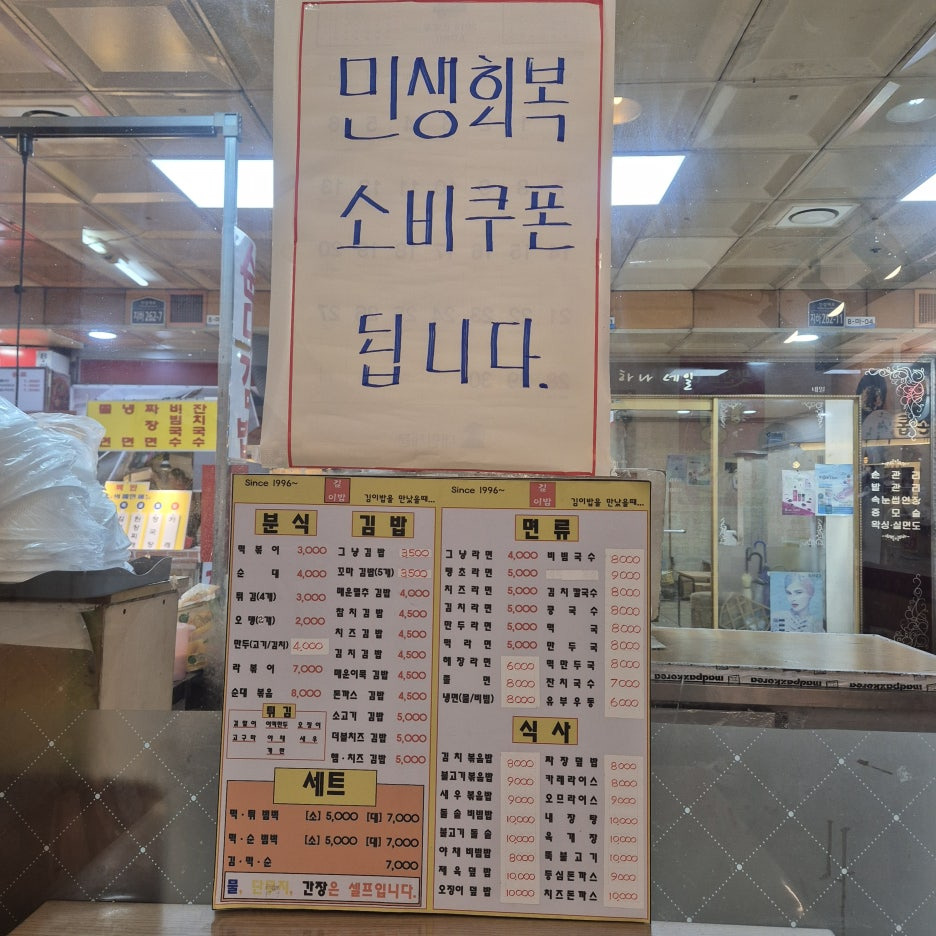 민생회복
소비쿠폰
됩니다.
지하 262-7
지하 262-11
B-마-04
하나 네일
네일
쫄 냉 짜 비 잔
장 빔 치
국 국
면 면 면 수 수
손 관 리
발 관 리
속눈썹연장
증 모 술
왁싱·실면도
madpazkorea madpazkorea
Since 1996~
길이밥
김이밥을 만났을때...
Since 1996~
김이밥을 만났을때...
분식
떡볶이 3,000
순대 4,000
튀김(4개) 3,000
오뎅(2개) 2,000
만두(고기/김치) 4,000
라볶이 7,000
순대 볶음 8,000
튀김
김말이 야끼만두 오징어
고구마 야채 새우
계란
김밥
그냥김밥 3,500
꼬마 김밥(5개) 3,500
매운멸추 김밥 4,000
참치김밥 4,500
치즈김밥 4,500
김치김밥 4,500
매운어묵 김밥 4,500
돈까스 김밥 4,500
소고기 김밥 5,000
더블치즈 김밥 5,000
햄·치즈 김밥 5,000
세트
떡·튀 범벅 [소] 5,000 [대] 7,000
떡·순 범벅 [소] 5,000 [대] 7,000
김·떡·순 7,000
물, 단무지, 간장은 셀프입니다.
면류
그냥라면 4,000
땡초라면 5,000
치즈라면 5,000
김치라면 5,000
만두라면 5,000
떡라면 5,000
해장라면 6000
쫄면 8000
냉면(물/비빔) 8000
비빔국수 8000
9000
김치칼국수 8000
콩국수 8000
떡국 8000
만두국 8000
떡만두국 8000
잔치국수 7000
유부우동 6000
식사
김치볶음밥 8000
불고기볶음밥 9000
새우볶음밥 9000
돌솥비빔밥 10,000
불고기돌솥 10,000
야채비빔밥 8000
제육덮밥 10,000
오징어덮밥 10,000
짜장덮밥 8000
카레라이스 8000
오므라이스 9000
내장탕 10,000
육개장 10,000
뚝불고기 10,000
등심돈까스 9000
치즈돈까스 10,000